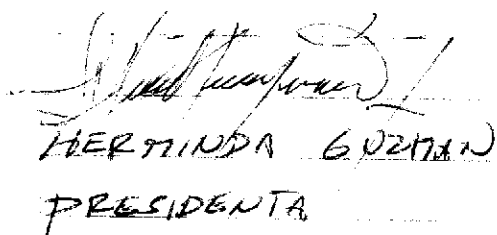 HERMINDA GUZMAN
PRESIDENTA